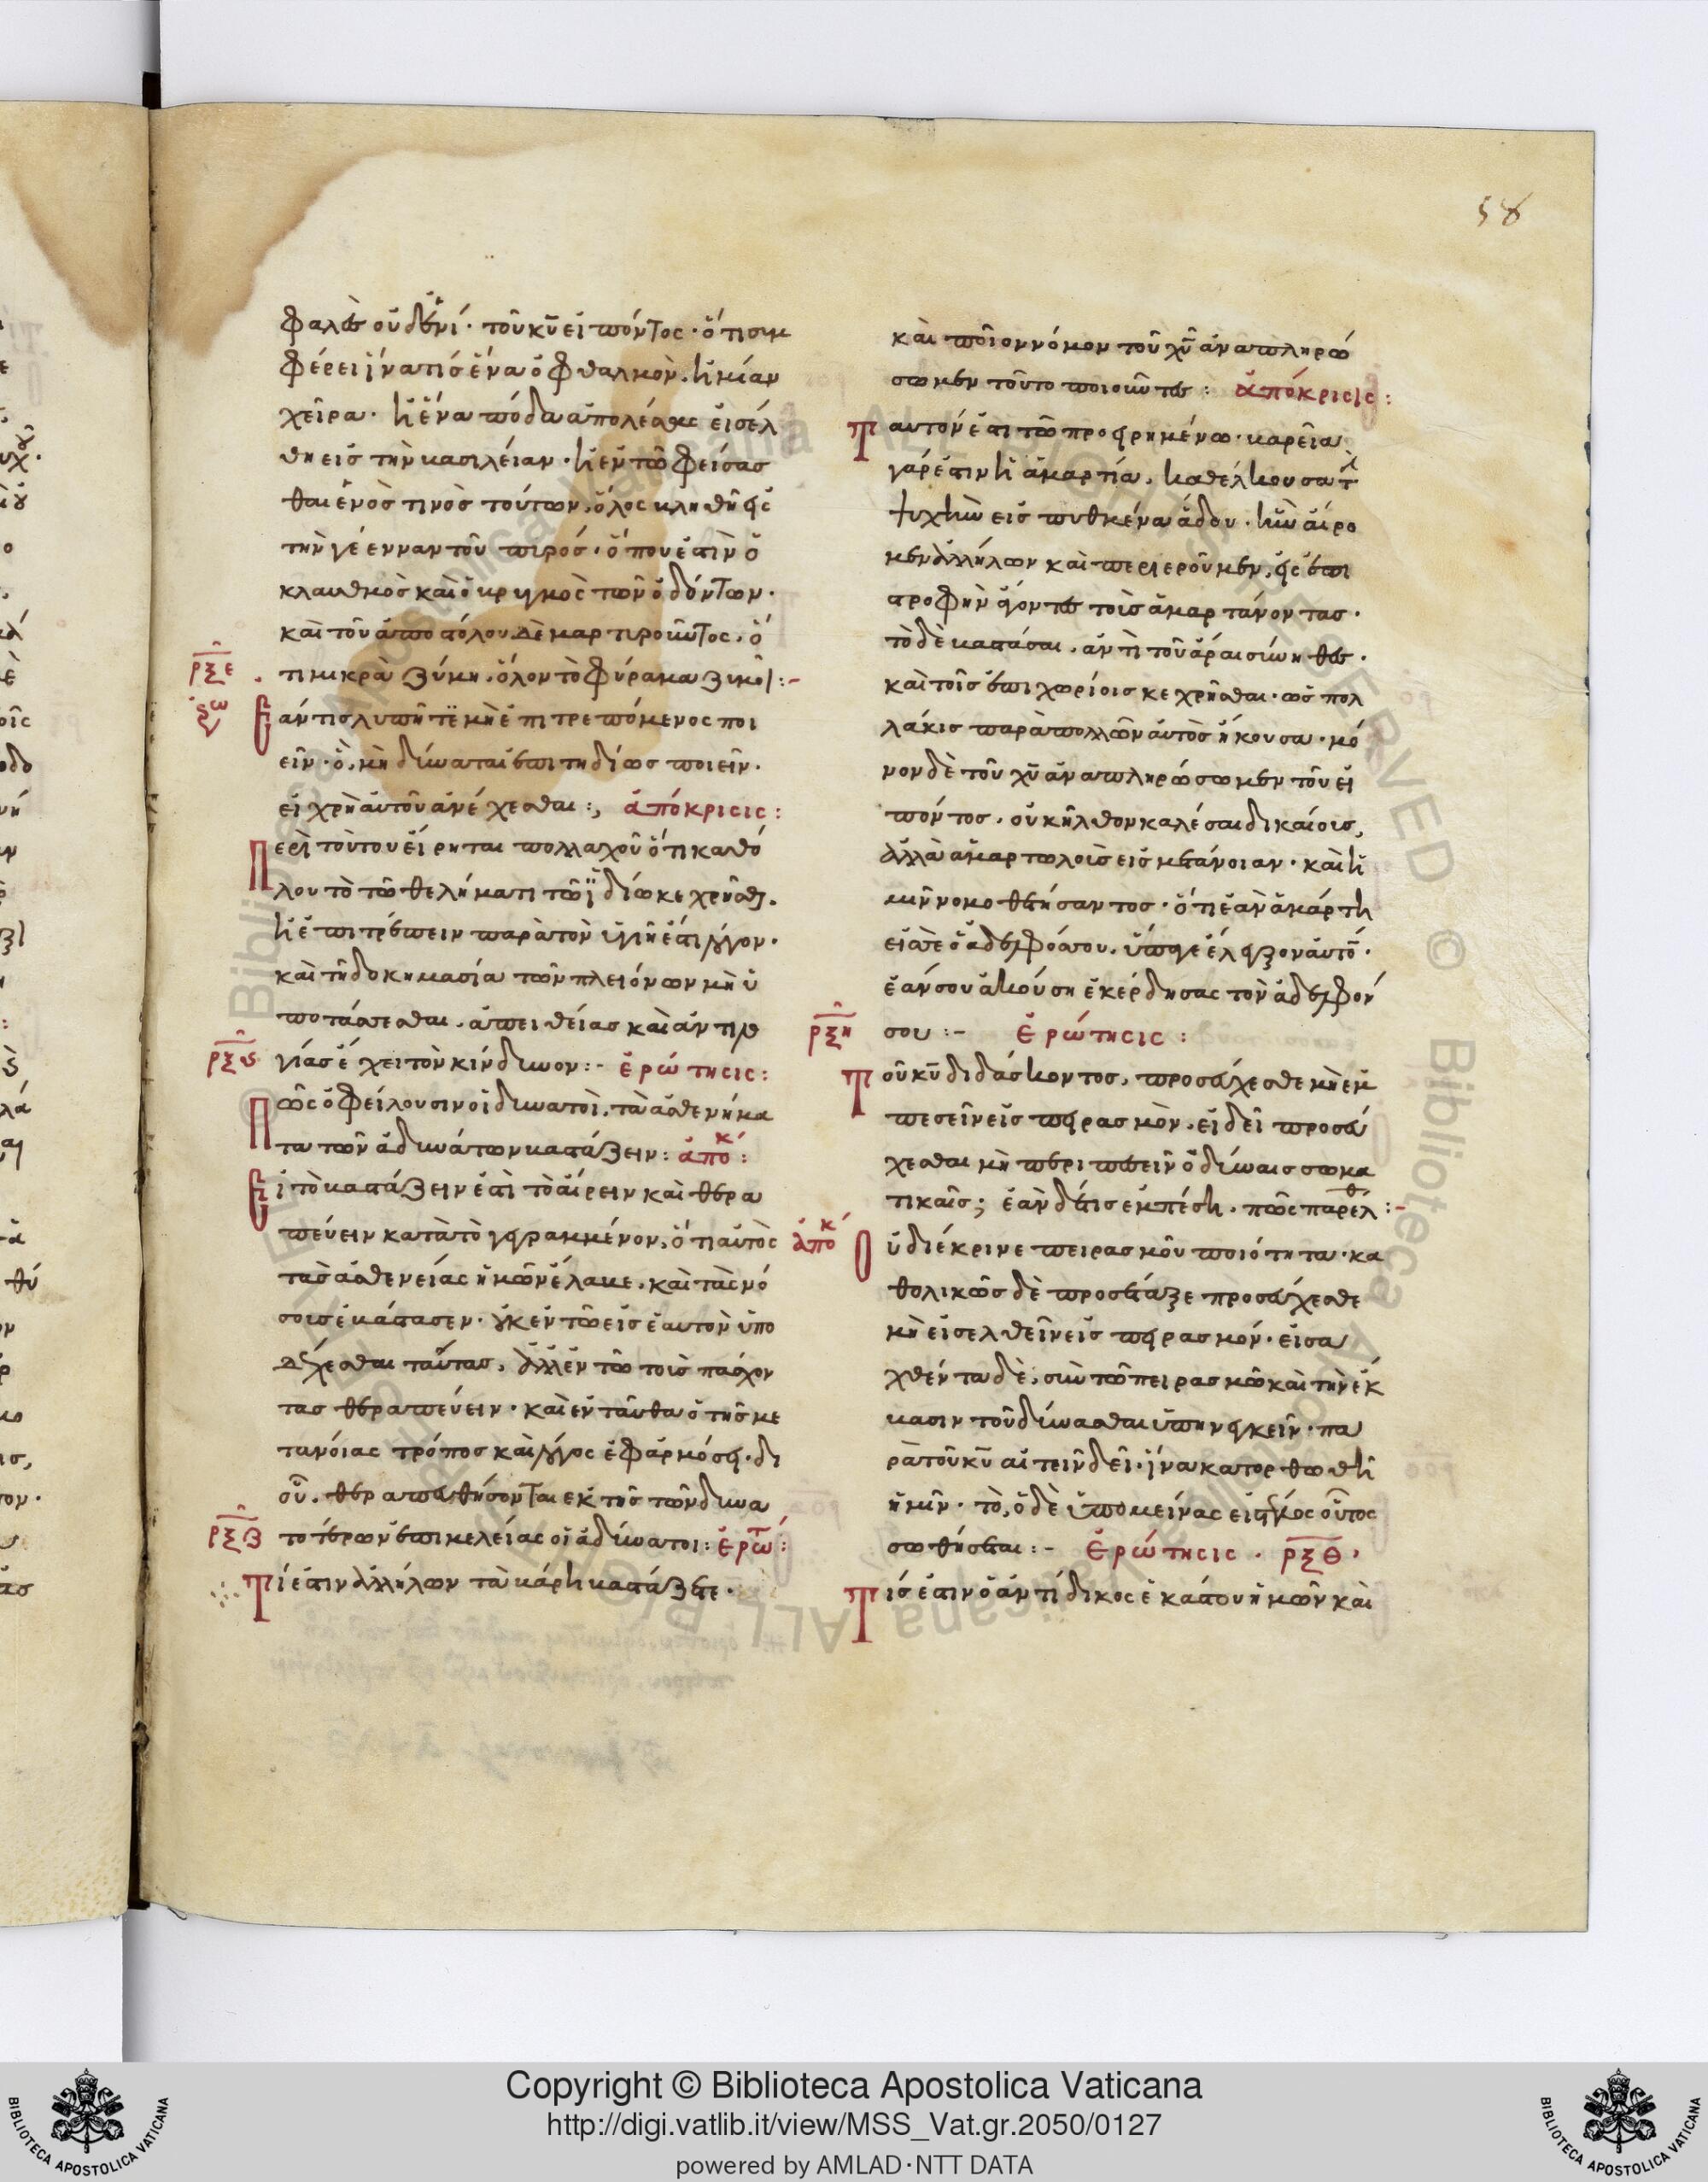 58
φαλὲς οὐδενί· τοῦ κῦ εἰπόντος· ὅτι συμ
φέρει ἵνα τὶς ἕνα ὀφθαλμὸν. ἢ μίαν
χεῖρα· ἢ ἕνα πόδα ἀπολέσας εἰσέλ
θη εἰς τὴν βασιλείαν· ἢ ἐν τῶ φείσασ
θαι ἑνός τινος τούτων, ὅλος βληθῆ εἰς
τὴν γέενναν τοῦ πυρός· ὅπου ἐστὶν ὁ
κλαυθμὸς καὶ ὁ βρυγμὸς τῶν ὀδόντων·
καὶ τοῦ ἀποστόλου δὲ μαρτυροῦντος, ὅ
ρξε τι μικρὰ ζύμη, ὅλον τὸ φύραμα ζυμοῖ:-
Ἐάν τις λυπῆται μὴ ἐπιτρεπόμενος ποι
εῖν· ὃ, μὴ δύναται ἐπιτηδείως ποιεῖν.
εἰ χρὴ αὐτοῦ ἀνέχεσθαι:, ἀπόκρισις:
Περὶ τούτου εἴρηται πολλαχοῦ ὅτι καθό
λου τὸ τῶ θελήματι τῶ ἰδίω κεχρῆσθαι.
ἢ ἐπιτρέπειν παρὰ τὸν ὑγιῆ ἐστι λόγον·
καὶ τῆ δοκιμασία τῶν πλειόνων μὴ ὑ
ποτάσσεσθαι. ἀπειθείας καὶ ἀντιλο
ρξϛ γίας ἔχει τὸν κίνδυνον:- ἐρώτησις:
Πῶς ὀφείλουσιν οἱ δυνατοὶ, τὰ ἀσθενήμα
τα τῶν ἀδυνάτων βαστάζειν: ἀπόκ:
Εἰ τὸ βαστάζειν ἐστὶ τὸ αἴρειν καὶ θερα
πεύειν κατὰ τὸ γεγραμμένον, ὅτι αὐτὸς
τὰς ἀσθενείας ἡμῶν ἔλαβε, καὶ τὰς νό
σους ἐβάστασεν· οὐκ ἐν τῶ εἰς ἑαυτὸν ὑπο
δέχεσθαι ταύτας, ἀλλ' ἐν τῶ τοὺς πάσχον
τας θεραπεύειν· καὶ ἐνταῦθα ὁ τῆς με
τανοίας τρόπος καὶ λόγος ἐφαρμόσει· δι
οὗ. θεραπευθήσονται ἐκ τῆς τῶν δυνα
ρξζ τωτέρων ἐπιμελείας οἱ ἀδύνατοι: ἐρώτ:
Τί ἐστιν ἀλλήλων τὰ βάρη βαστάζετε·
καὶ ποῖον νόμον τοῦ χῦ ἀναπληρώ
σωμεν τοῦτο ποιοῦντες: ἀπόκρισις:
Ταυτόν ἐστι τῶ προειρημένω· βαρεῖα
γάρ ἐστιν ἡ ἁμαρτία, καθέλκουσα τὴν
ψυχὴν εἰς πυθμένα ἅδου· ἣν αἴρο
μεν ἀλλήλων καὶ περιεροῦμεν, εἰς ἐπι
στροφὴν ἄγοντες τοὺς ἁμαρτάνοντας·
τὸ δὲ βαστάσαι, ἀντὶ τοῦ ἆραι σύνηθες.
καὶ τοῖς ἐπιχωρίοις κεχρῆσθαι· ὡς πολ
λάκις παρὰ πολλῶν αὐτὸς ἤκουσα· μό
νον δὲ τοῦ χῦ ἀναπληρώσωμεν τοῦ εἰ
πόντος, οὐκ ἦλθον καλέσαι δικαίους,
ἀλλὰ ἁμαρτωλοὺς εἰς μετάνοιαν· καὶ ἡ
μῖν νομοθετήσαντος· ὅτι ἐὰν ἁμάρτη
εἰς σὲ ὁ ἀδελφός σου. ὕπαγε ἔλεγξον αὐτὸν·
ἐάν σου ἀκούση ἐκέρδησας τὸν ἀδελφόν
ρξη σου:- Ἐρώτησις:
Τοῦ κῦ διδάσκοντος, προσεύχεσθε μὴ ἐμ
πεσεῖν εἰς πειρασμὸν. εἰ δεῖ προσεύ
χεσθαι μὴ περιπεσεῖν ὀδύναις σωμα
τικαῖς; ἐὰν δέ τις ἐμπέση, πῶς παρέλθ:-
ἀπόκ Οὐ διέκρινε πειρασμοῦ ποιότητα· κα
θολικῶς δὲ προσέταξε προσεύχεσθε
μὴ εἰσελθεῖν εἰς πειρασμόν· εἰσα
χθέντα δὲ, σὺν τῶ πειρασμῶ καὶ τὴν ἔκ
βασιν τοῦ δύνασθαι ὑπενεγκεῖν· πα
ρὰ τοῦ κῦ αἰτεῖν δεῖ· ἵνα κατορθωθῆ
ἡμῖν· τὸ, ὁ δὲ ὑπομείνας εἰς τέλος οὗτος
σωθήσεται:- Ἐρώτησις. ρξθ,
Τίς ἐστιν ὁ ἀντίδικος ἑκάστου ἡμῶν καὶ
Copyright © Biblioteca Apostolica Vaticana
http://digi.vatlib.it/view/MSS_Vat.gr.2050/0127
powered by AMLAD·NTT DATA
BIBLIOTECA APOSTOLICA VATICANA
BIBLIOTECA APOSTOLICA VATICANA